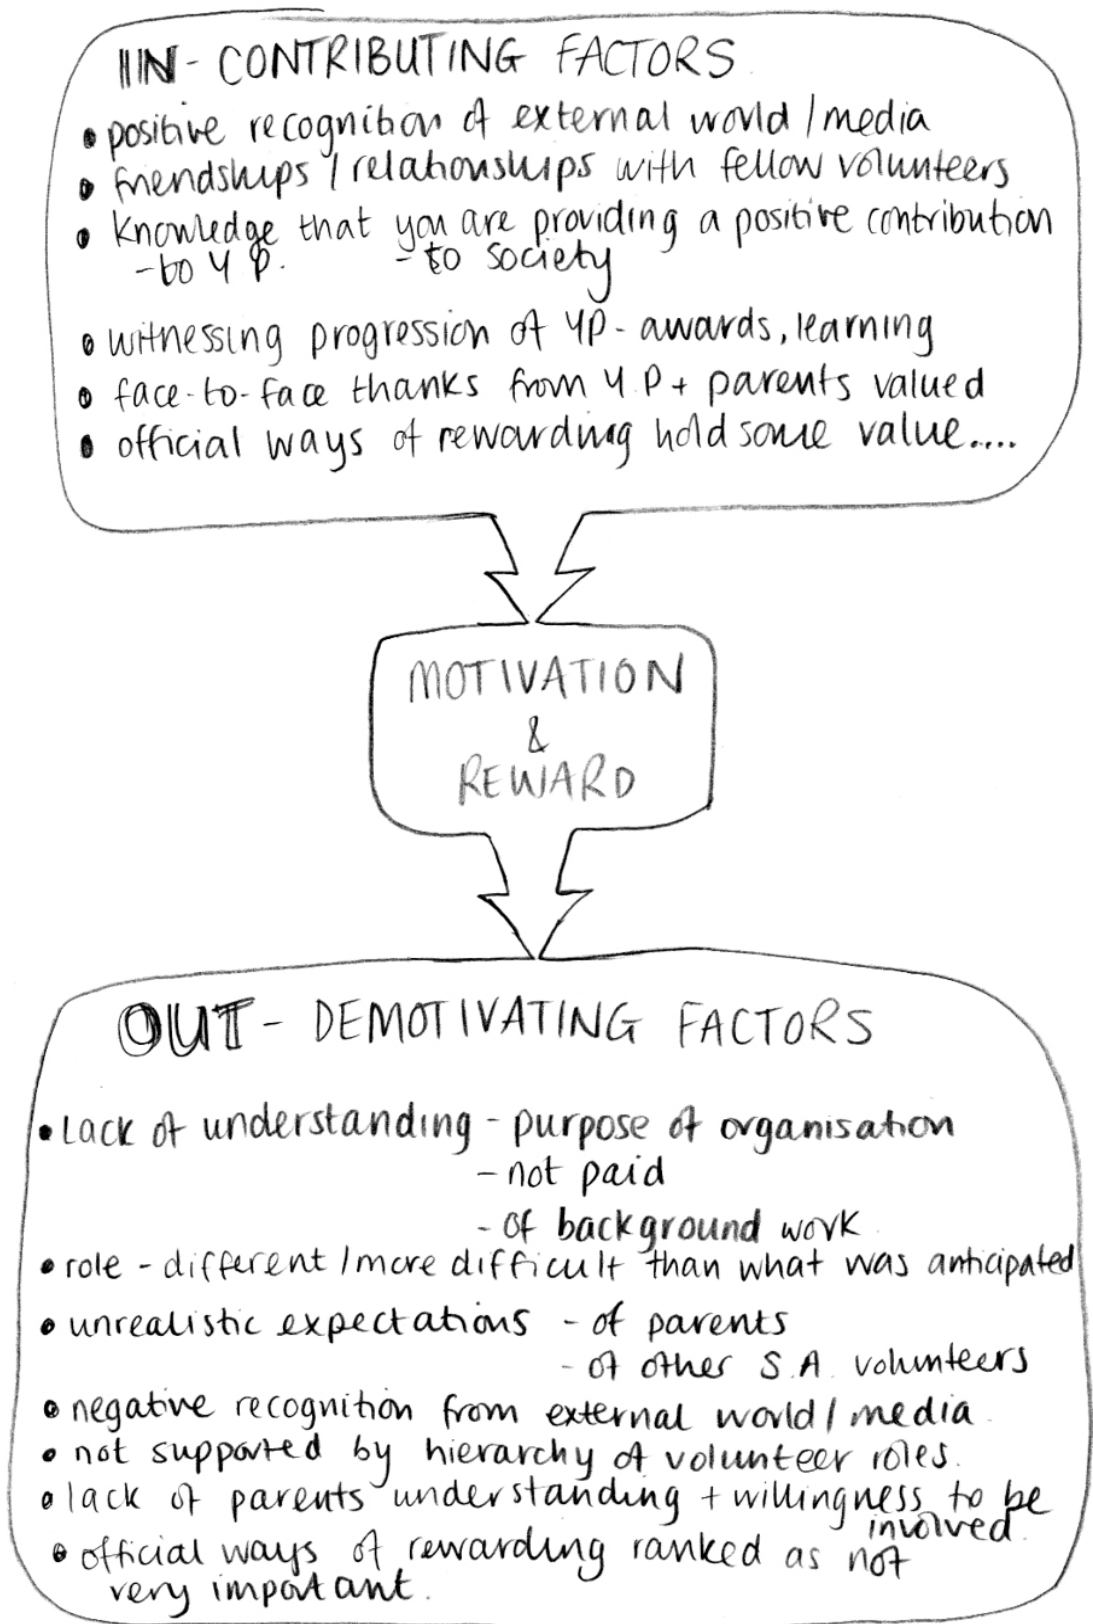 IN - CONTRIBUTING FACTORS
• positive recognition of external world / media
• friendships / relationships with fellow volunteers
• knowledge that you are providing a positive contribution
- to Y P. - to society
• witnessing progression of YP - awards, learning
• face-to-face thanks from Y.P + parents valued
• official ways of rewarding hold some value....
MOTIVATION
&
REWARD
OUT - DEMOTIVATING FACTORS
• Lack of understanding - purpose of organisation
- not paid
- of background work.
• role - different / more difficult than what was anticipated
• unrealistic expectations - of parents
- of other S.A. volunteers
• negative recognition from external world / media.
• not supported by hierarchy of volunteer roles.
• lack of parents understanding + willingness to be
involved.
• official ways of rewarding ranked as not
very important.